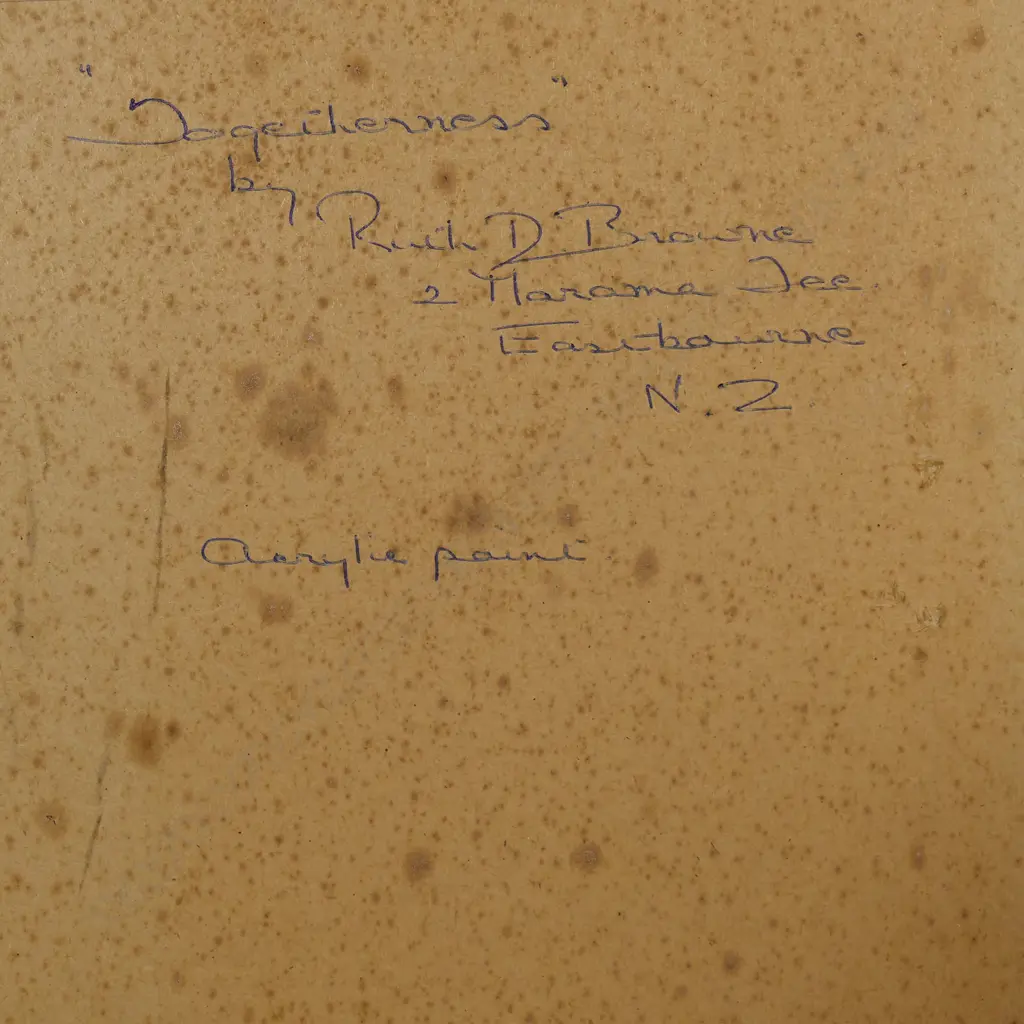 "Togetherness"
by
Ruth D Browne
2 Marama Tce
Eastbourne
N.Z
Acrylic paint